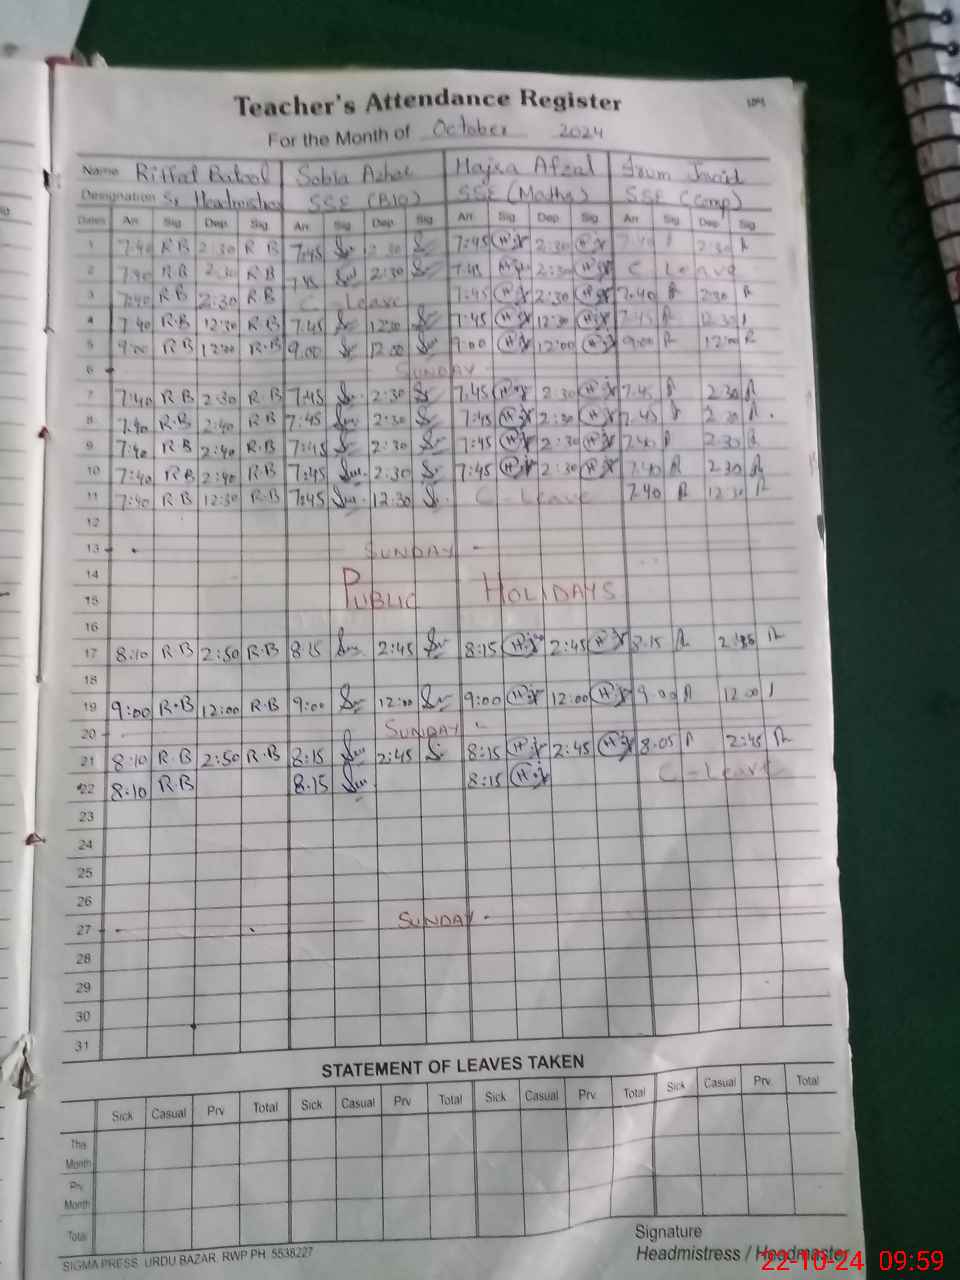 Teacher's Attendance Register
For the Month of October 2024
Name Riffat Batool Sobia Azhar Hajra Afzal Irum Javid
Designation Sr Headmistress SSE (BIO) SSE (Maths) SSE (Comp)
Dates Arr. Sig Dep. Sig Arr. Sig Dep. Sig Arr. Sig Dep. Sig Arr. Sig Dep. Sig
1 7:40 R B 2:30 R B 7:45 2:30 7:45 2:30 7:40 2:30
2 7:40 R B 2:30 R B 7:45 2:30 7:45 2:30 C Leave
3 7:40 R B 2:30 R B C - Leave 7:45 2:30 7.40 2:30
4 7:40 R.B 12:30 R.B 7:45 12:30 7:45 12:30 7:45 12:30
5 9:00 R B 12:00 R.B 9.00 12:00 9:00 12:00 9:00 12:00
6 SUNDAY
7 7:40 R B 2:30 R B 7:45 2:30 7.45 2:30 7.45 2:30
8 7:40 R.B 2:40 R B 7:45 2:30 7:45 2:30 7.45 2:30
9 7:40 R B 2:40 R.B 7:45 2:30 7:45 2:30 7.40 2:30
10 7:40 R B 2:40 R.B 7:45 2:30 7:45 2:30 7.40 2:30
11 7:40 R B 12:30 R.B 7:45 12:30 C - Leave 7.40 12:30
12
13 SUNDAY
14
PUBLIC HOLIDAYS
15
16
17 8:10 R B 2:50 R.B 8:15 2:45 8:15 2:45 8.15 2:45
18
19 9:00 R.B 12:00 R.B 9:00 12:00 9:00 12:00 9:00 12:00
20 SUNDAY
21 8:10 R.B 2:50 R.B 8:15 2:45 8:15 2:45 8.05 2:45
22 8:10 R.B 8:15 8:15 C - Leave
23
24
25
26
27 SUNDAY
28
29
30
31
STATEMENT OF LEAVES TAKEN
Sick Casual Prv Total Sick Casual Prv Total Sick Casual Prv. Total Sick Casual Prv. Total
The
Month
Prv.
Month
Total
Signature
SIGMA PRESS. URDU BAZAR. RWP PH. 5538227
Headmistress / Headmaster
22-10-24 09:59